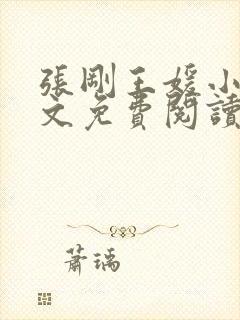 張剛王媛小
文免費閱讀
蕭瑀